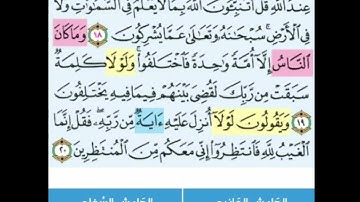 عِندَ اللَّهِ قُلْ أَتُنَبِّئُونَ اللَّهَ بِمَا لَا يَعْلَمُ فِي السَّمَاوَاتِ وَلَا
فِي الْأَرْضِ سُبْحَانَهُ وَتَعَالَىٰ عَمَّا يُشْرِكُونَ ١٨ وَمَا كَانَ
النَّاسُ إِلَّا أُمَّةً وَاحِدَةً فَاخْتَلَفُوا وَلَوْلَا كَلِمَةٌ
سَبَقَتْ مِن رَّبِّكَ لَقُضِيَ بَيْنَهُمْ فِيمَا فِيهِ يَخْتَلِفُونَ
١٩ وَيَقُولُونَ لَوْلَا أُنزِلَ عَلَيْهِ ءَايَةٌ مِّن رَّبِّهِ فَقُلْ إِنَّمَا
الْغَيْبُ لِلَّهِ فَانتَظِرُوا إِنِّي مَعَكُم مِّنَ الْمُنتَظِرِينَ ٢٠